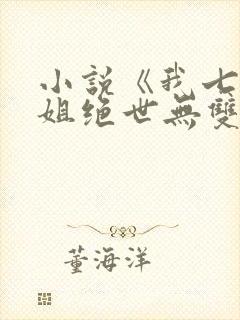 小說《我七
姐绝世無雙
董海洋